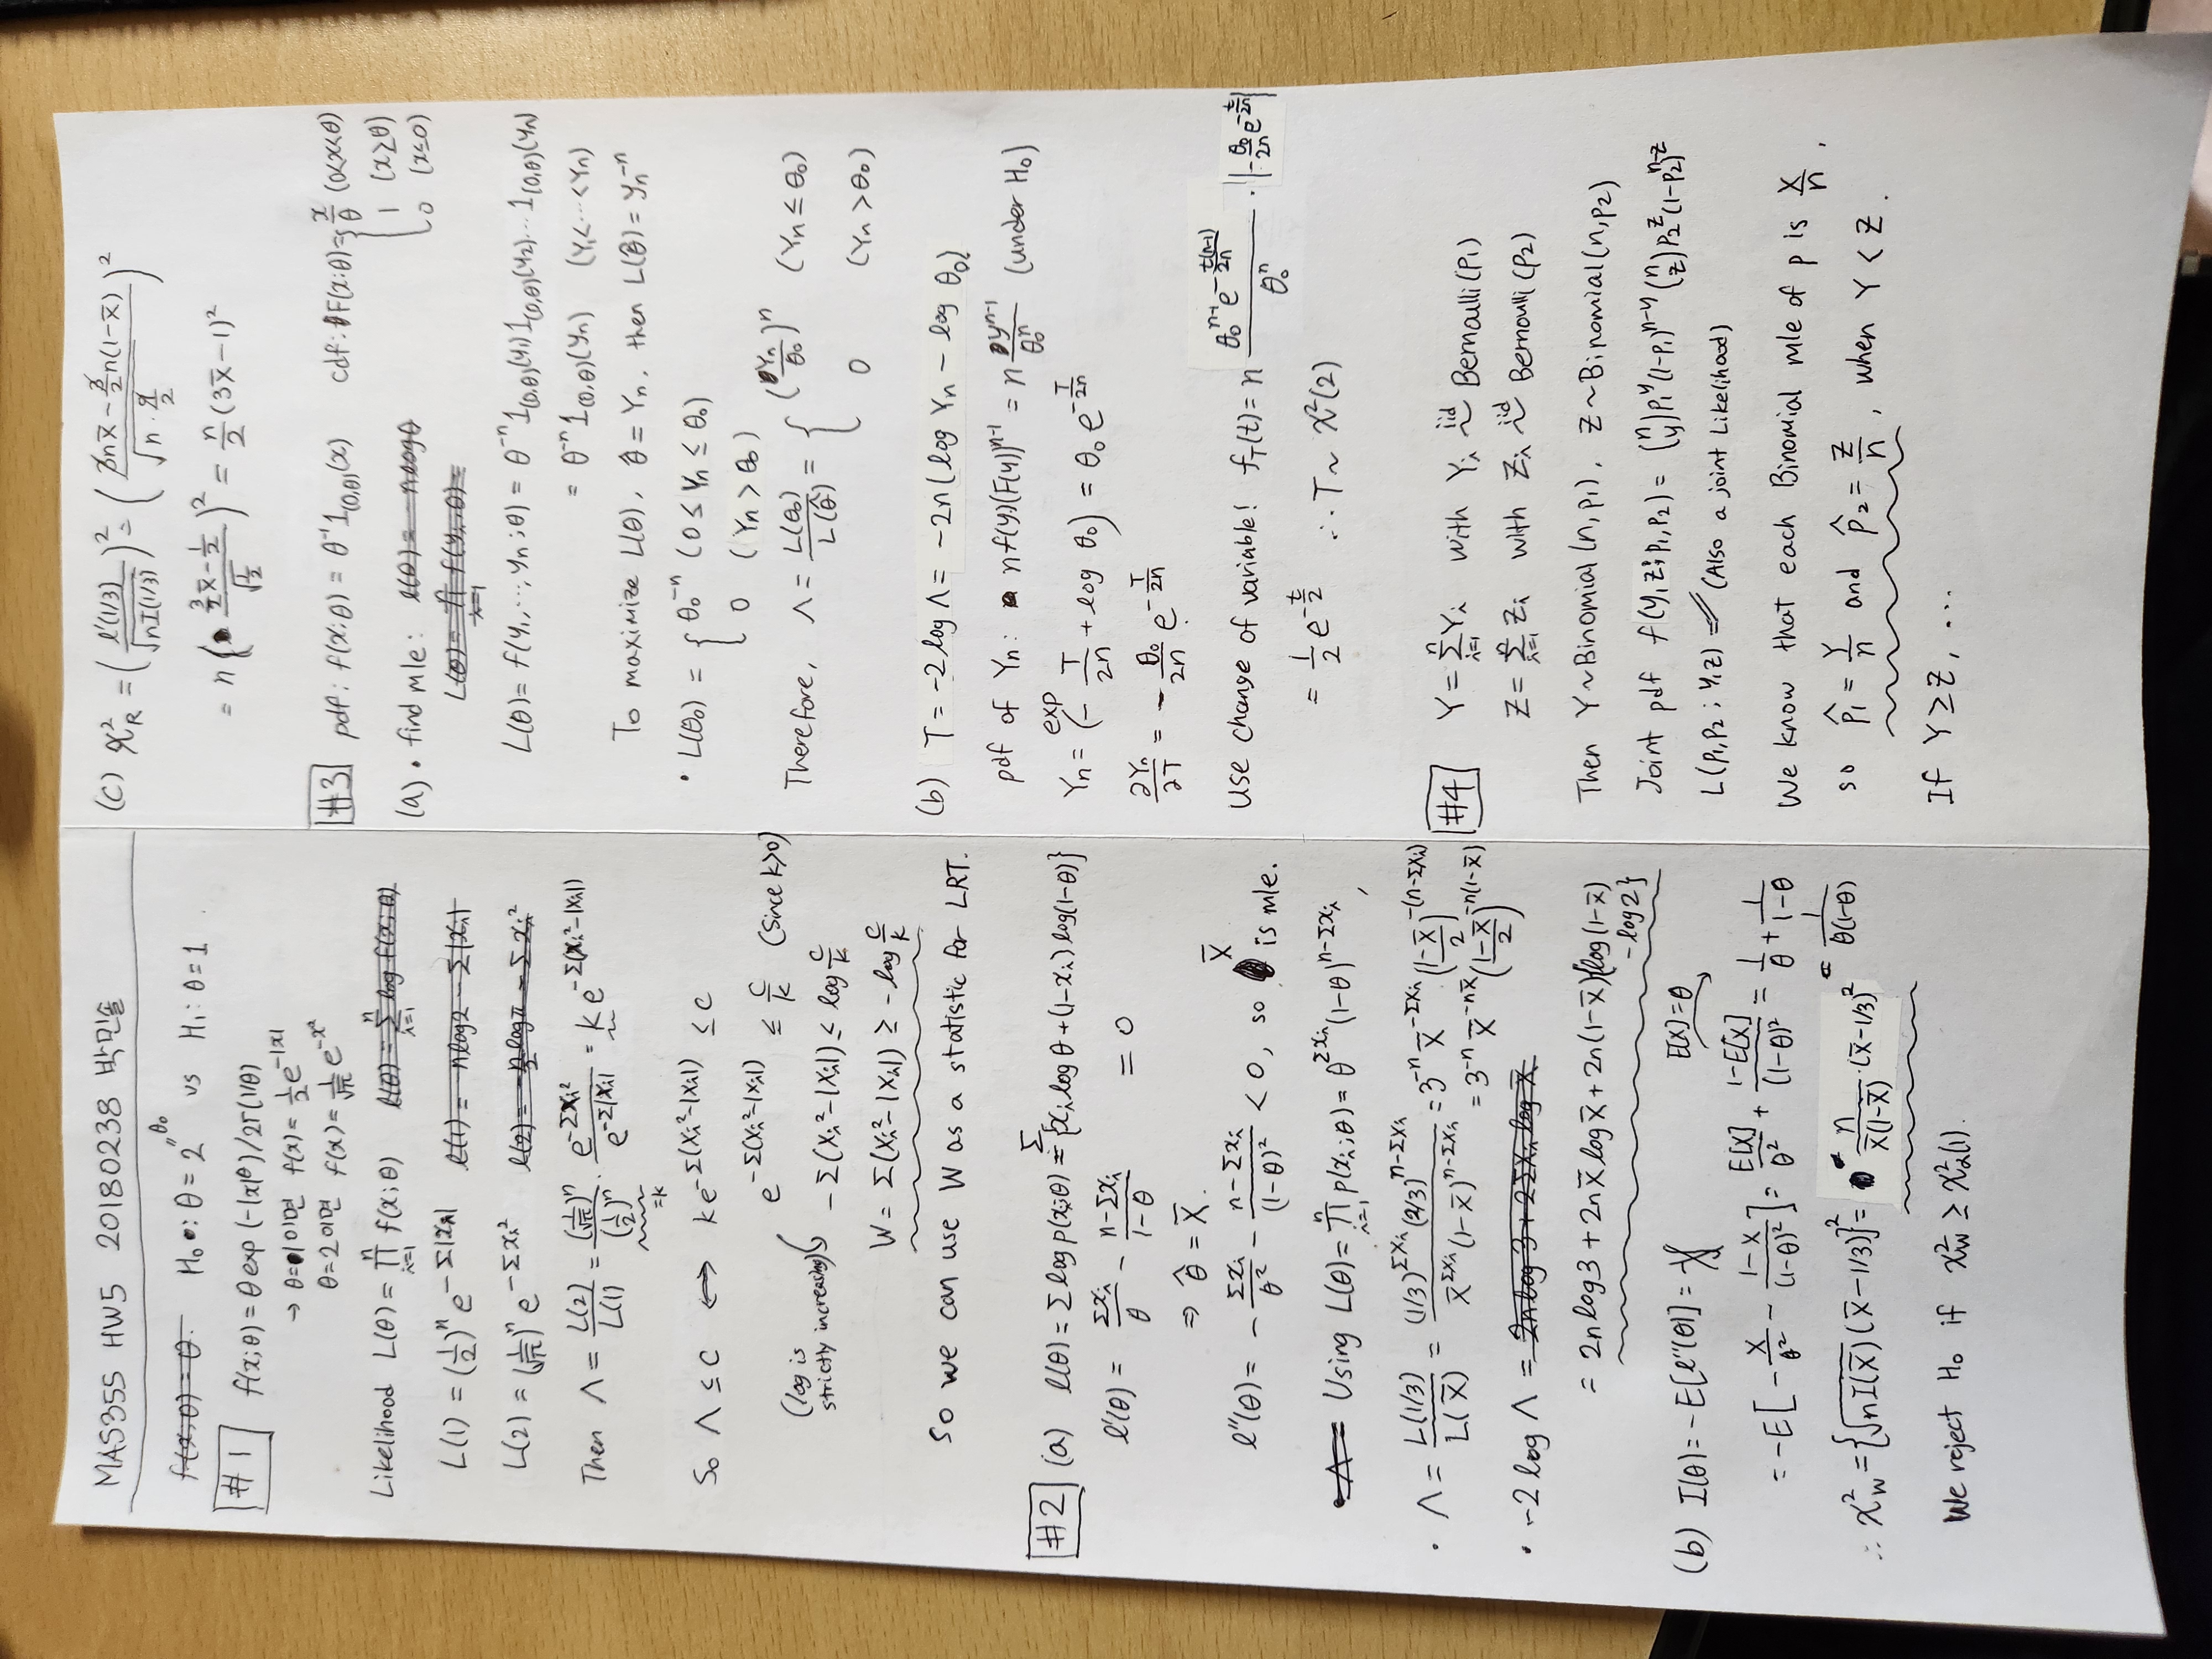 MAS355 HW5 20180238 박민솔
f(x;θ) = θ.
H₀: θ = 2 "θ₀ vs H₁: θ = 1
#1
f(x;θ) = θ exp(-|x|^θ)/2Γ(1/θ)
→ θ=1이면 f(x) = 1/2 e^{-|x|}
θ=2이면 f(x) = 1/√π e^{-x²}
Likelihood L(θ) = ∏_{i=1}^n f(x;θ) ℓ(θ) = Σ_{i=1}^n log f(x;θ)
L(1) = (1/2)^n e^{-Σ|xi|} ℓ(1) = -n log2 - Σ|xi|
L(2) = (1/√π)^n e^{-Σxi²} ℓ(2) = -n/2 logπ - Σxi²
Then Λ = L(2)/L(1) = (1/√π)^n/(1/2)^n · e^{-Σxi²}/e^{-Σ|xi|} = k e^{-Σ(xi²-|xi|)}
=k
So Λ ≤ c ⟷ k e^{-Σ(xi²-|xi|)} ≤ c
e^{-Σ(xi²-|xi|)} ≤ c/k (since k>0)
(log is strictly increasing) -Σ(xi²-|xi|) ≤ log c/k
W = Σ(xi²-|xi|) ≥ -log c/k
So we can use W as a statistic for LRT.
#2 (a) ℓ(θ) = Σ log p(xi;θ) = Σ{xi logθ + (1-xi) log(1-θ)}
ℓ'(θ) = Σxi/θ - (n-Σxi)/(1-θ) = 0
⇒ θ̂ = X̄.
ℓ''(θ) = -Σxi/θ² - (n-Σxi)/(1-θ)² < 0, so X̄ is mle.
Λ = Using L(θ) = ∏_{i=1}^n p(xi;θ) = θ^{Σxi}(1-θ)^{n-Σxi},
• Λ = L(1/3)/L(X̄) = (1/3)^{Σxi}(2/3)^{n-Σxi} / X̄^{Σxi}(1-X̄)^{n-Σxi} = 3^{-n} X̄^{-Σxi} ((1-X̄)/2)^{-(n-Σxi)}
= 3^{-n} X̄^{-nX̄} ((1-X̄)/2)^{-n(1-X̄)}
• -2 log Λ = 2n log 3 + 2Σxi log X̄
= 2n log 3 + 2n X̄ log X̄ + 2n(1-X̄){log(1-X̄) - log2}
(b) I(θ) = -E[ℓ''(θ)] = E[X]=θ
= -E[-X/θ² - (1-X)/(1-θ)²] = E[X]/θ² + (1-E[X])/(1-θ)² = 1/θ + 1/(1-θ)
= 1/θ(1-θ)
∴ χ²_W = {√nI(X̄) (X̄-1/3)}² = n/X̄(1-X̄) · (X̄-1/3)²
We reject H₀ if χ²_W ≥ χ²_α(1).
(c) χ²_R = (ℓ'(1/3)/√nI(1/3))² = ((3nX̄ - 3/2 n(1-X̄))/√(n·9/2))²
= n((3/2 X̄ - 1/2)/√(1/2))² = n/2 (3X̄-1)²
#3 pdf: f(x;θ) = θ^{-1} 1_{(0,θ)}(x) cdf: F(x;θ) = { x/θ (0<x<θ)
1 (x≥θ)
0 (x≤0)
(a) • find mle: ℓ(θ) = -n logθ
L(θ) = ∏_{i=1}^n f(yi;θ) =
L(θ) = f(y₁,…,yn;θ) = θ^{-n} 1_{(0,θ)}(y₁) 1_{(0,θ)}(y₂)… 1_{(0,θ)}(yn)
= θ^{-n} 1_{(0,θ)}(yn) (y₁<…<yn)
To maximize L(θ), θ̂ = Yn, then L(θ̂) = Yn^{-n}
• L(θ₀) = { θ₀^{-n} (0 ≤ Yn ≤ θ₀)
0 (Yn > θ₀)
Therefore, Λ = L(θ₀)/L(θ̂) = { (Yn/θ₀)^n (Yn ≤ θ₀)
0 (Yn > θ₀)
(b) T = -2 log Λ = -2n(log Yn - log θ₀)
pdf of Yn: n f(y)(F(y))^{n-1} = n y^{n-1}/θ₀^n (under H₀)
Yn = exp(-T/2n + log θ₀) = θ₀ e^{-T/2n}
∂Yn/∂T = -θ₀/2n e^{-T/2n}
Use change of variable! f_T(t) = n θ₀^{n-1} e^{-t(n-1)/2n} / θ₀^n · |-θ₀/2n e^{-t/2n}|
= 1/2 e^{-t/2} ∴ T ~ χ²(2)
#4 Y = Σ_{i=1}^n Yi with Yi iid~ Bernoulli(p₁)
Z = Σ_{i=1}^n Zi with Zi iid~ Bernoulli(p₂)
Then Y ~ Binomial(n,p₁), Z ~ Binomial(n,p₂)
Joint pdf f(y,z;p₁,p₂) = (n y) p₁^y (1-p₁)^{n-y} (n z) p₂^z (1-p₂)^{n-z}
L(p₁,p₂;y,z) = (Also a joint Likelihood)
We know that each Binomial mle of p is X/n,
so p̂₁ = Y/n and p̂₂ = Z/n, when Y < Z.
If Y ≥ Z, ...